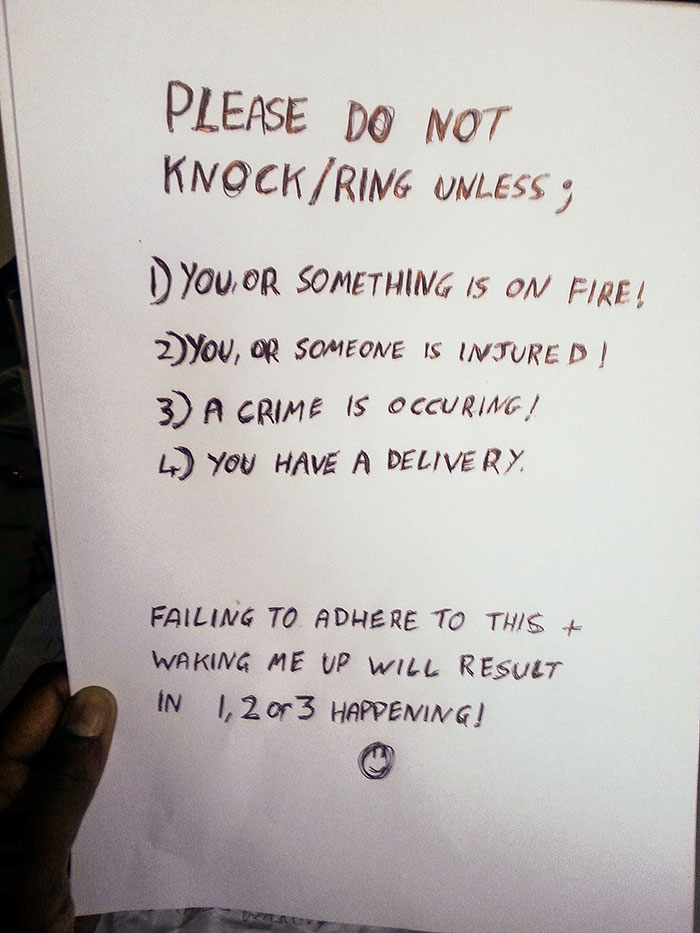 PLEASE DO NOT
KNOCK/RING UNLESS;
1) YOU, OR SOMETHING IS ON FIRE!
2) YOU, OR SOMEONE IS INJURED!
3) A CRIME IS OCCURING!
4) YOU HAVE A DELIVERY.
FAILING TO ADHERE TO THIS +
WAKING ME UP WILL RESULT
IN 1, 2 or 3 HAPPENING!